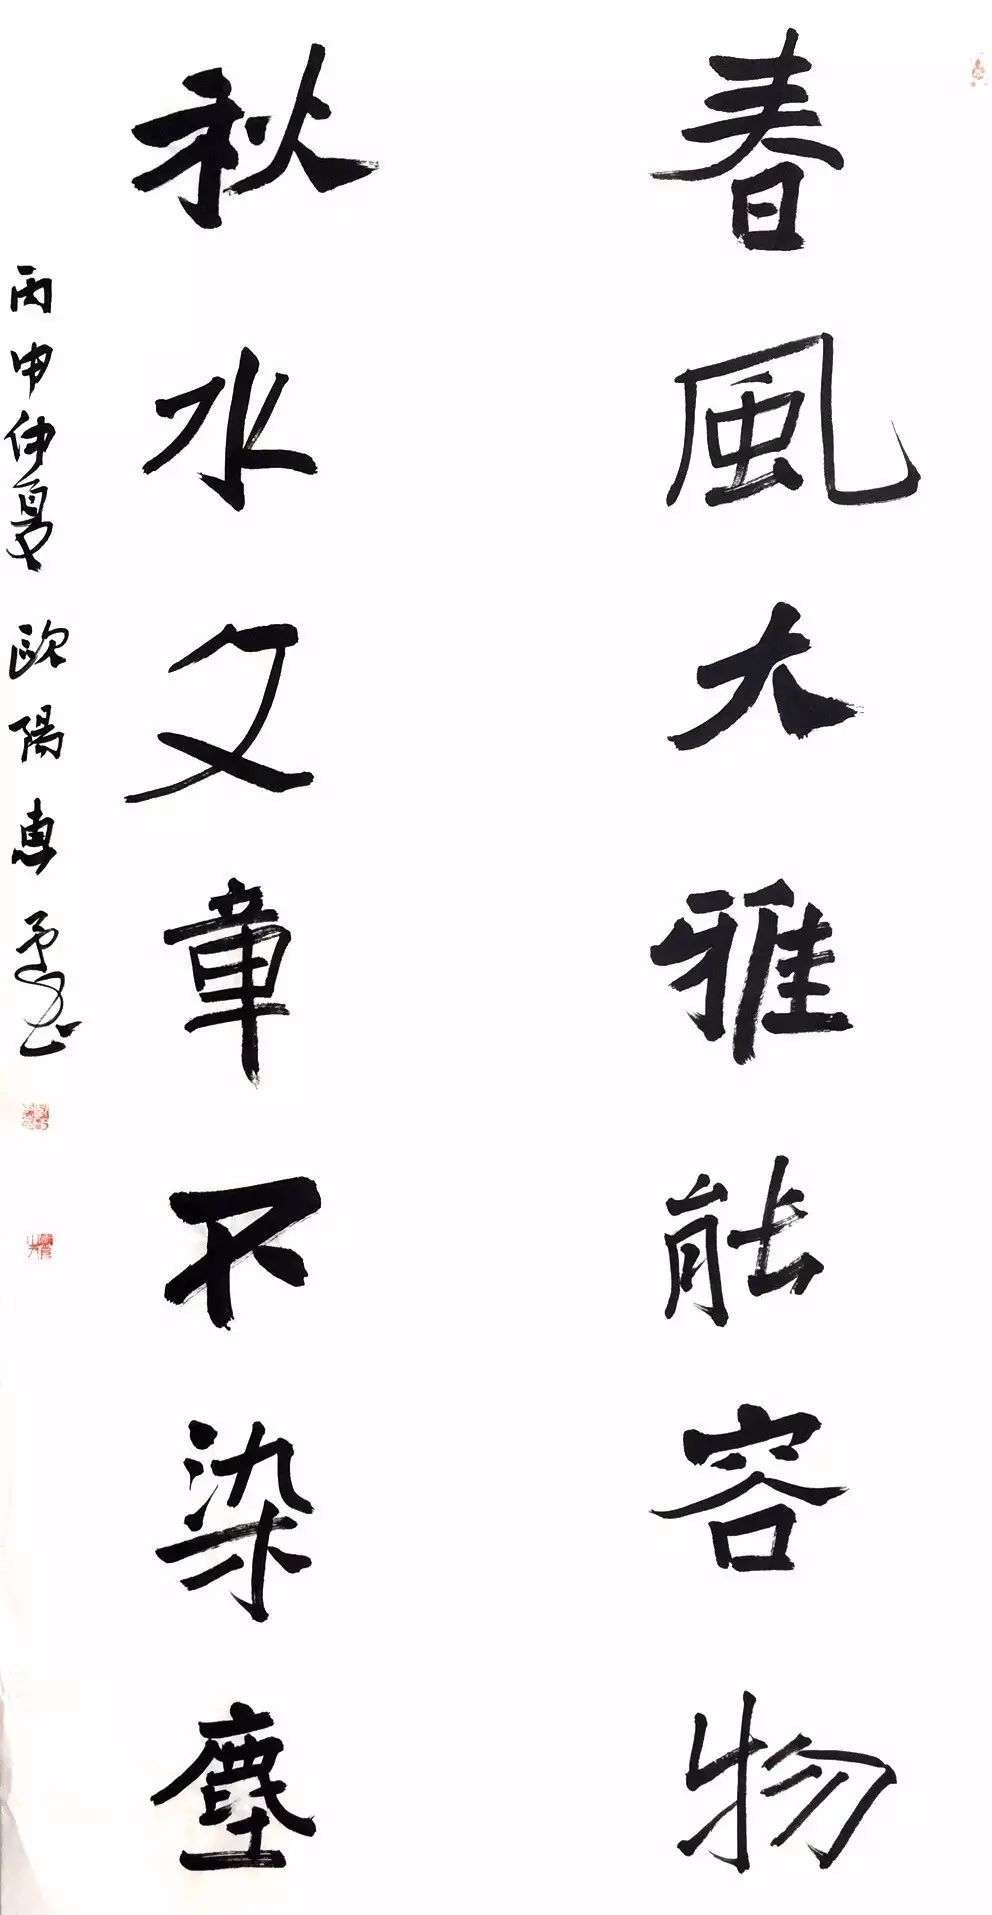 春風大雅能容物
秋水文章不染塵
丙申仲夏 歐陽惠